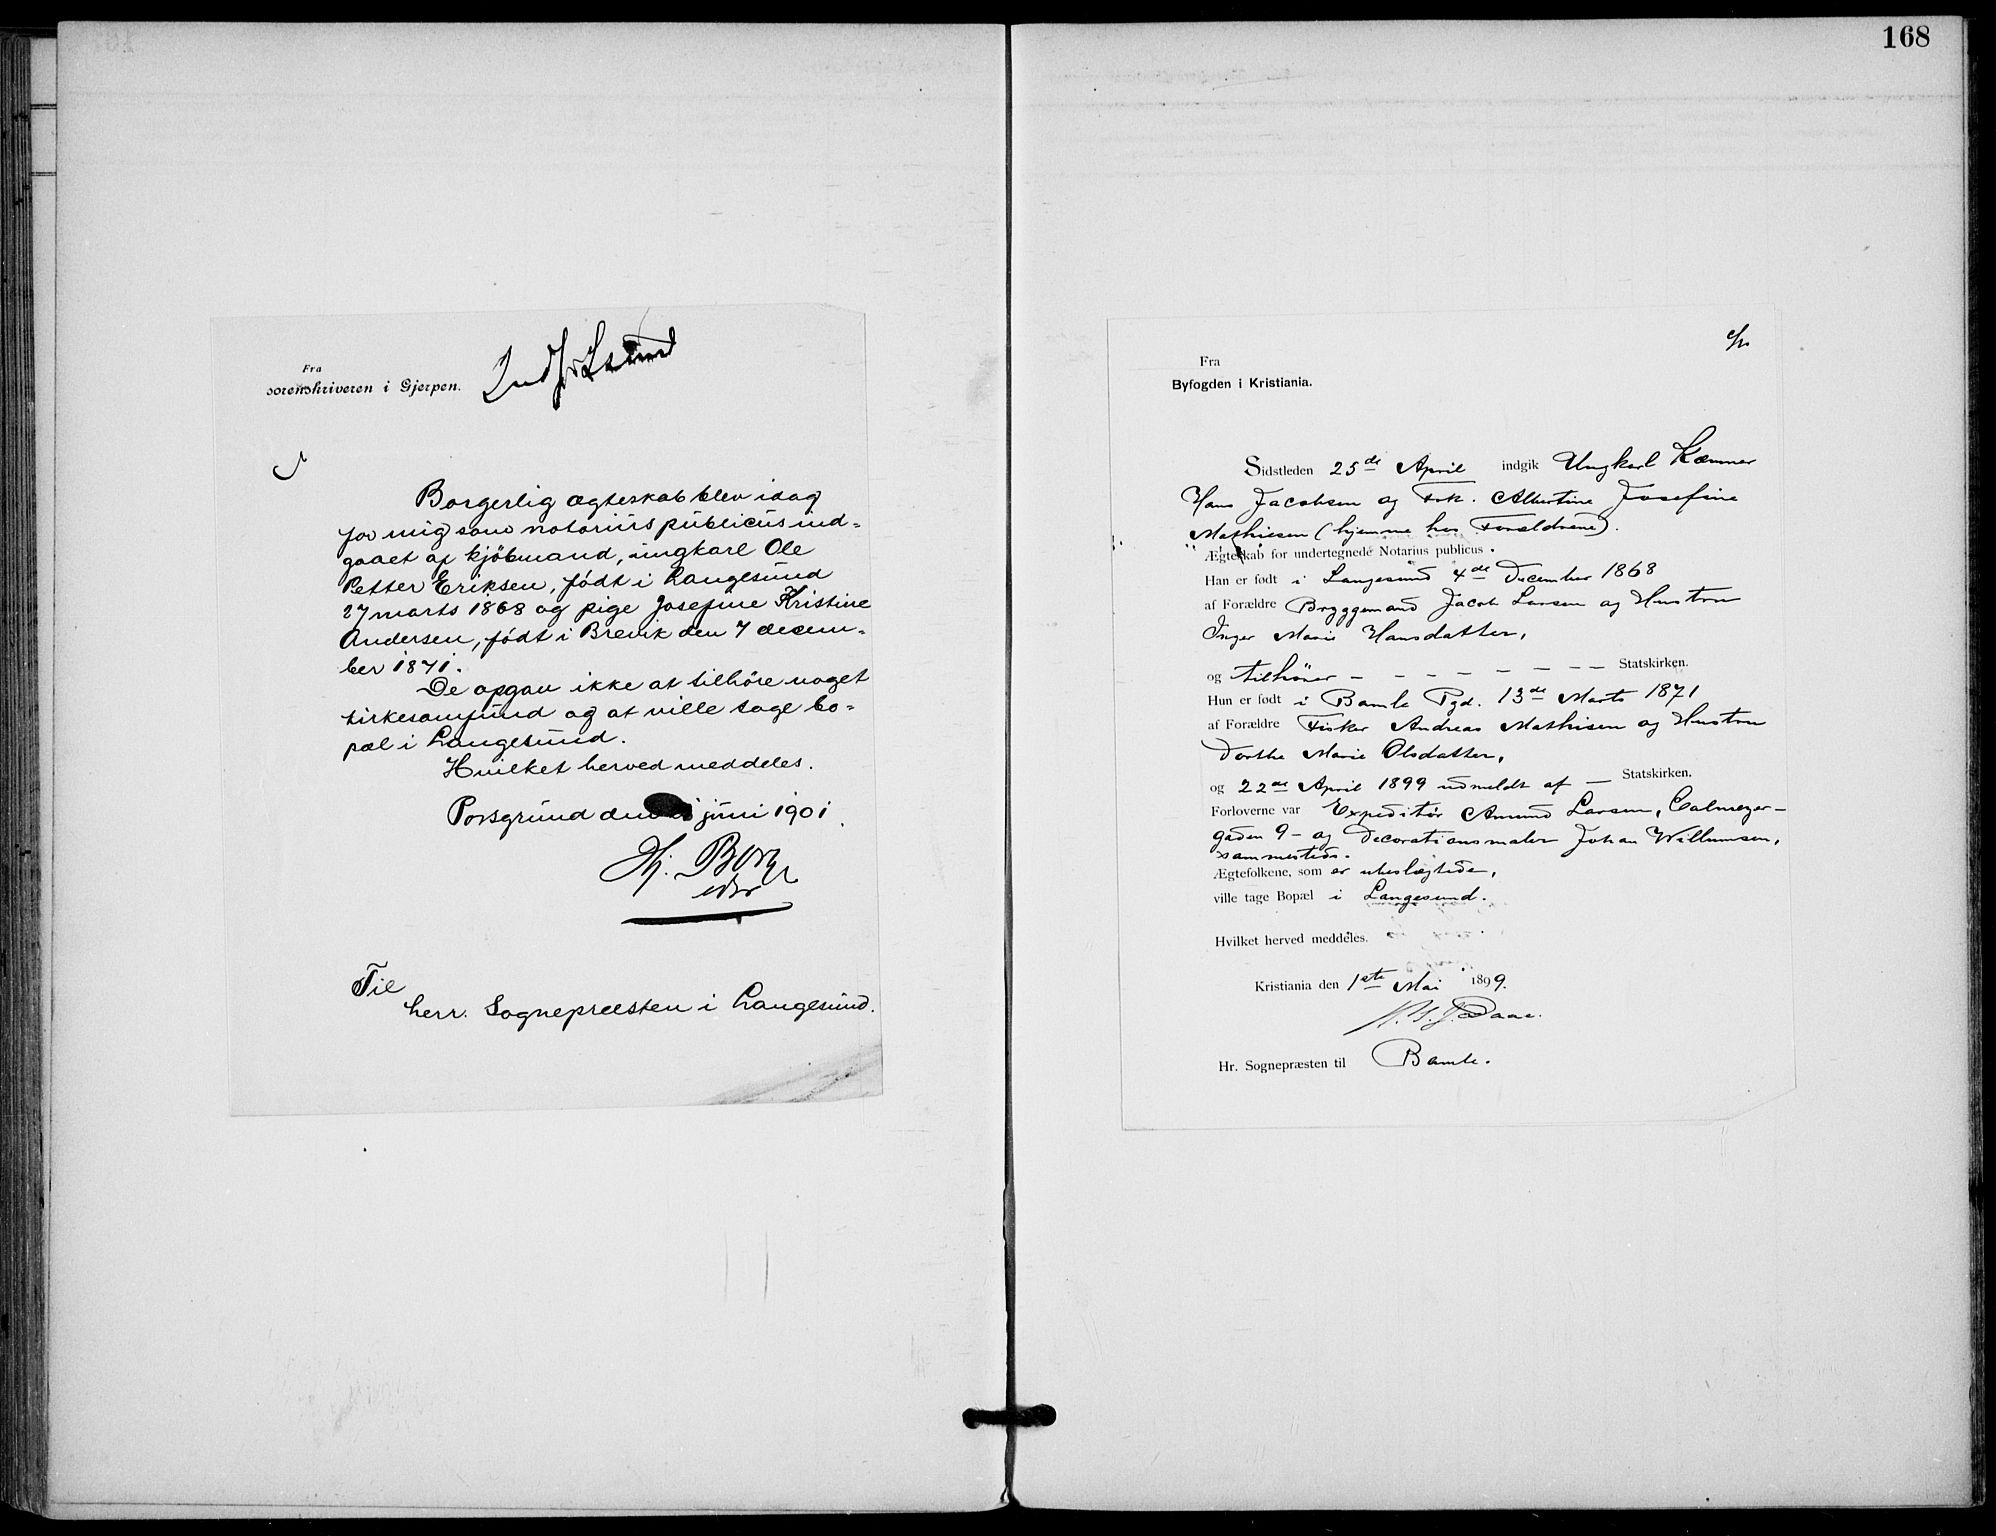 Fra
sorenskriveren i Gjerpen.
Indf Lsund
Borgerlig ægteskab blev idag
for mig som notarius publicus ind-
gaaet af kjöbmand, ungkarl Ole
Petter Eriksen, födt i Langesund
27 marts 1868 og pige Josefine Kristine
Andersen, födt i Brevik den 7 decem-
ber 1871.
De opgav ikke at tilhöre noget
kirkesamfund og at ville tage bo-
pæl i Langesund.
Hvilket herved meddeles.
Porsgrund den juni 1901.
Hj. Borge
Til
herr. Sognepræsten i Langesund.
168
Fra
Byfogden i Kristiania.
Sidstleden 25de April indgik Ungkarl Kæmner
Hans Jacobsen og Frk. Albertine Josefine
Mathisen (hjemme hos Forældrene).
Ægteskab for undertegnede Notarius publicus.
Han er født i Langesund 4de December 1868
af Forældre Bryggemand Jacob Larsen og Hustru
Inger Marie Hansdatter,
og tilhører - - - - - - - Statskirken.
Hun er født i Bamle Pgd. 13de Marts 1871
af Forældre Fisker Andreas Mathisen og Hustru
Dorthe Marie Olsdatter,
og 22de April 1899 udmeldt af - Statskirken.
Forloverne var Expeditør Amund Larsen, Calmeyer-
gaden 9 - og Decorationsmaler Johan Willumsen,
sammesteds.
Ægtefolkene, som er ubeslægtede,
ville tage Bopæl i Langesund.
Hvilket herved meddeles.
Kristiania den 1ste Mai 1899.
Daae.
Hr. Sognepræsten til Bamle.